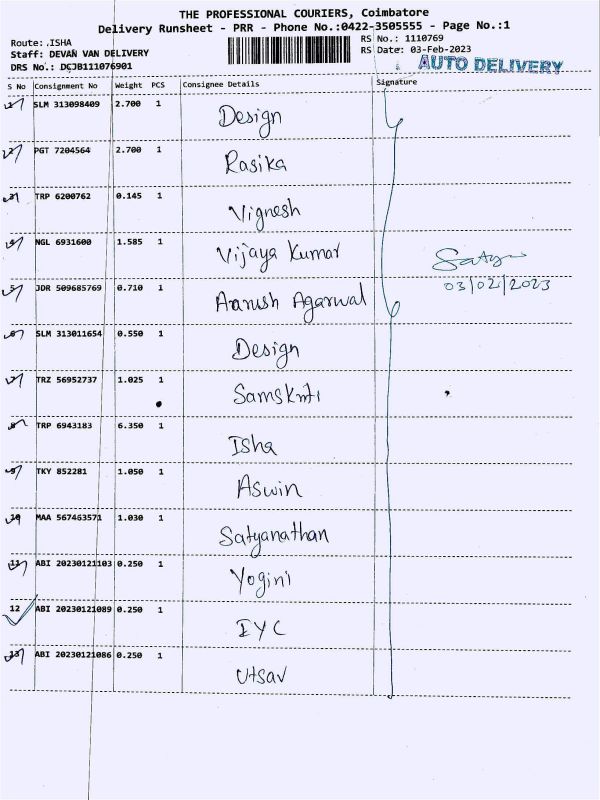 THE PROFESSIONAL COURIERS, Coimbatore
Delivery Runsheet - PRR - Phone No.:0422-3505555 - Page No.:1
Route: .ISHA
Staff: DEVAN VAN DELIVERY
DRS No.: DCJB111076901
RS No.: 1110769
RS Date: 03-Feb-2023
AUTO DELIVERY
S No Consignment No Weight PCS Consignee Details Signature
1 SLM 313098409 2.700 1 Design
2 PGT 7204564 2.700 1 Rasika
3 TRP 6200762 0.145 1 Vignesh
4 NGL 6931600 1.585 1 Vijaya Kumar
Satya
03/02/2023
5 JDR 509685769 0.710 1 Aarush Agarwal
6 SLM 313011654 0.550 1 Design
7 TRZ 56952737 1.025 1 Samskriti
8 TRP 6943183 6.350 1 Isha
9 TKY 852281 1.050 1 Aswin
10 MAA 567463571 1.030 1 Satyanathan
11 ABI 20230121103 0.250 1 Yogini
12 ABI 20230121089 0.250 1 IYC
13 ABI 20230121086 0.250 1 Utsav